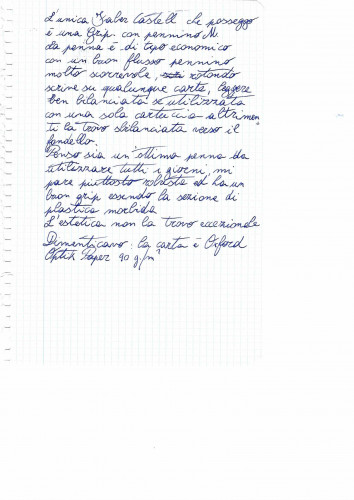 L'unica Faber Castell che posseggo
è una Grip con pennino M.
La penna è di tipo economico
con un buon flusso pennino
molto scorrevole, rotondo
scrive su qualunque carta, leggere
ben bilanciata se utilizzata
con una sola cartuccia altrimen
ti la trovo sbilanciata verso il
fondello.
Penso sia un'ottima penna da
utilizzare tutti i giorni, mi
pare piuttosto robusta ed ha un
buon grip essendo la sezione di
plastica morbida
L'estetica non la trovo eccezionale
Dimenticavo: la carta è Oxford
Optik Paper 90 g/m²